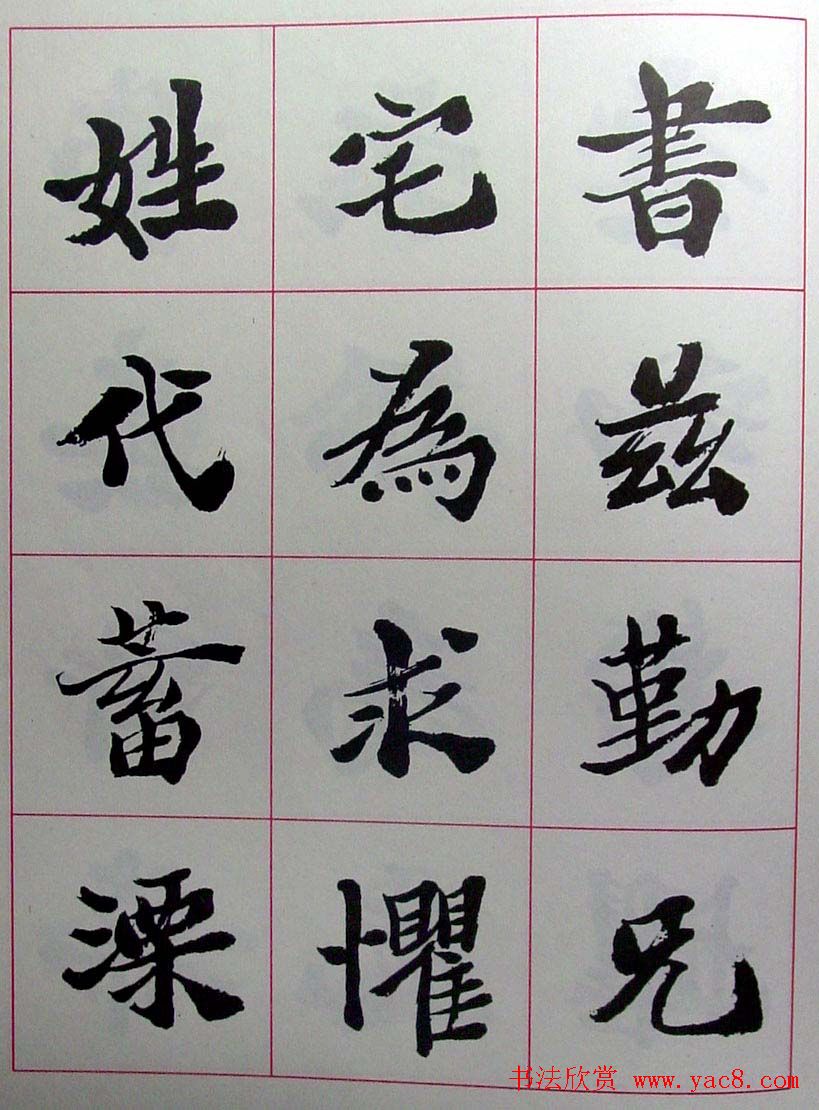 書兹勤兄
宅為求懼
姓代蓄溧
书法欣赏 www.yac8.com